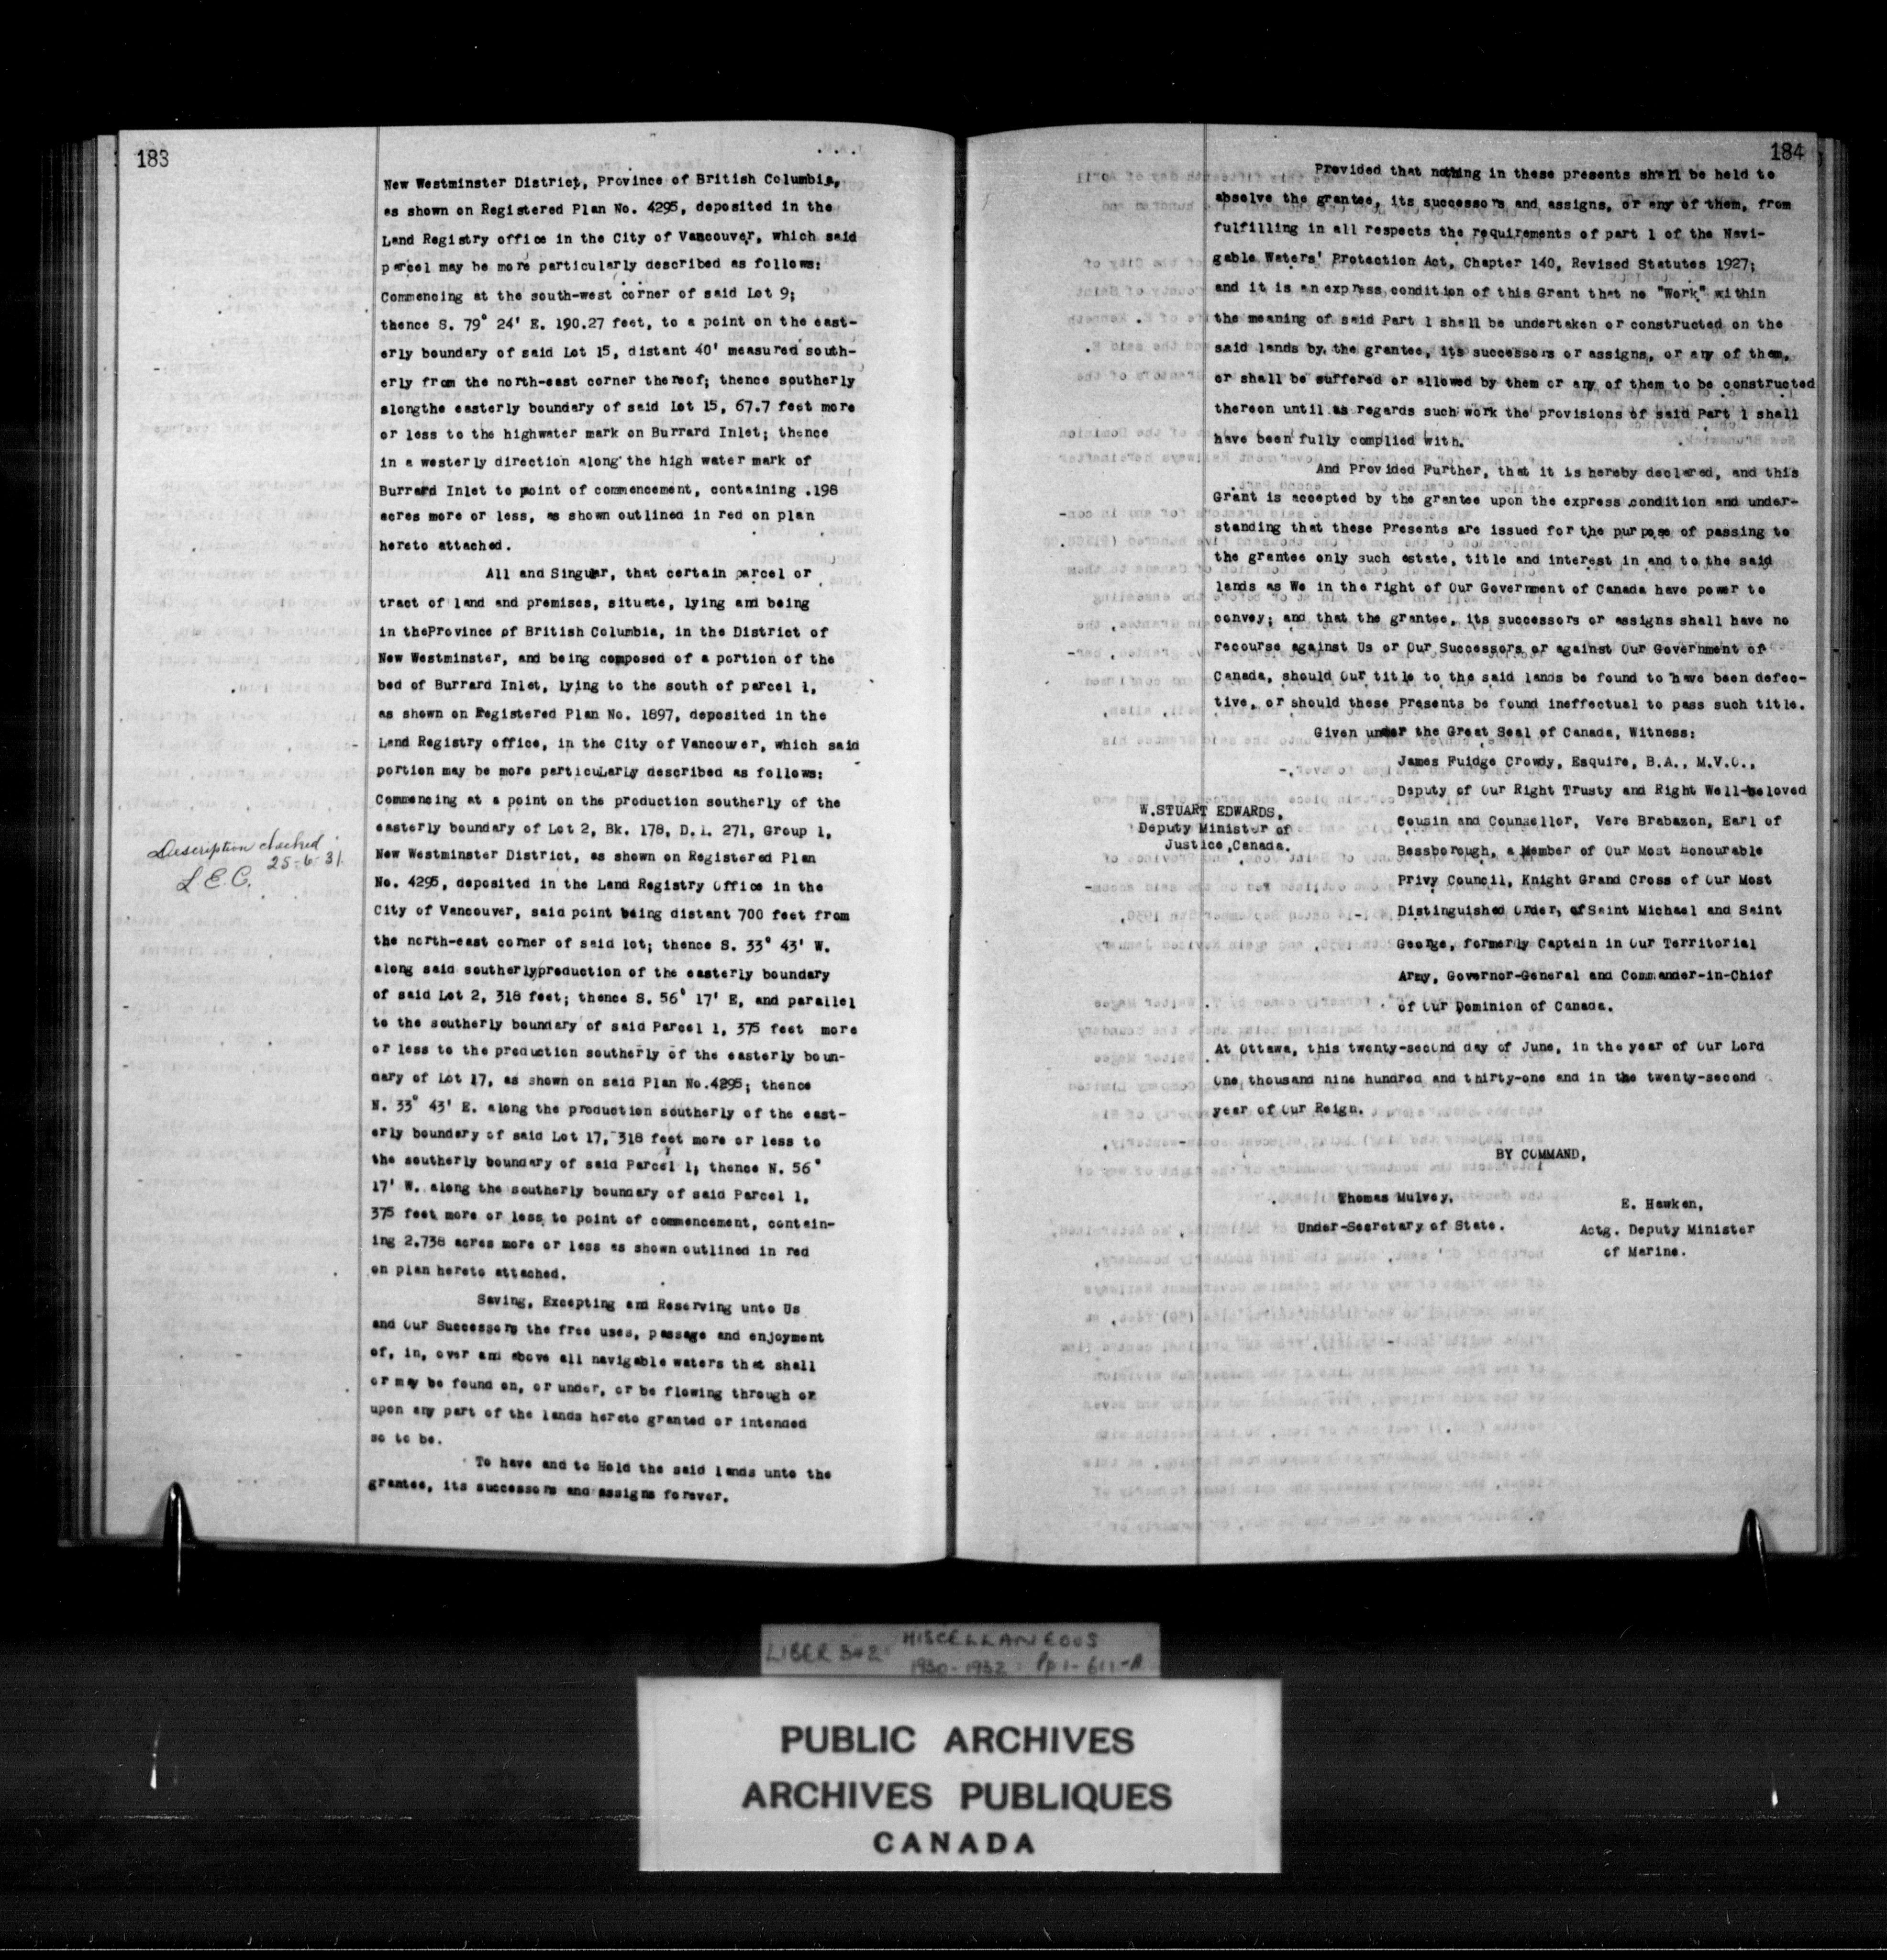 183
New Westminster District, Province of British Columbia,
as shown on Registered Plan No. 4295, deposited in the
Land Registry office in the City of Vancouver, which said
parcel may be more particularly described as follows:
Commencing at the south-west corner of said Lot 9;
thence S. 79° 24' E. 190.27 feet, to a point on the east-
erly boundary of said Lot 15, distant 40' measured south-
erly from the north-east corner thereof; thence southerly
alongthe easterly boundary of said Lot 15, 67.7 feet more
or less to the highwater mark on Burrard Inlet; thence
in a westerly direction along the high water mark of
Burrard Inlet to point of commencement, containing .198
acres more or less, as shown outlined in red on plan
hereto attached.
All and Singular, that certain parcel or
tract of land and premises, situate, lying and being
in theProvince of British Columbia, in the District of
New Westminster, and being composed of a portion of the
bed of Burrard Inlet, lying to the south of parcel 1,
as shown on Registered Plan No. 1897, deposited in the
Land Registry office, in the City of Vancouver, which said
portion may be more particularly described as follows:
Commencing at a point on the production southerly of the
easterly boundary of Lot 2, Bk. 178, D.L. 271, Group 1,
New Westminster District, as shown on Registered Plan
No. 4295, deposited in the Land Registry Office in the
City of Vancouver, said point being distant 700 feet from
the north-east corner of said lot; thence S. 33° 43' W.
along said southerlyproduction of the easterly boundary
of said Lot 2, 318 feet; thence S. 56° 17' E, and parallel
to the southerly boundary of said Parcel 1, 375 feet more
or less to the production southerly of the easterly boun-
dary of Lot 17, as shown on said Plan No.4295; thence
N. 33° 43' E. along the production southerly of the east-
erly boundary of said Lot 17, 318 feet more or less to
the southerly boundary of said Parcel 1; thence N. 56°
17' W. along the southerly boundary of said Parcel 1,
375 feet more or less to point of commencement, contain-
ing 2.738 acres more or less as shown outlined in red
on plan hereto attached.
Saving, Excepting and Reserving unto Us
and Our Successors the free uses, passage and enjoyment
of, in, over and above all navigable waters that shall
or may be found on, or under, or be flowing through or
upon any part of the lands hereto granted or intended
so to be.
To have and to Hold the said lands unto the
grantee, its successors and assigns forever.
Description checked
25-6-31
L.E.C.
184
Provided that nothing in these presents shall be held to
absolve the grantee, its successors and assigns, or any of them, from
fulfilling in all respects the requirements of part 1 of the Navi-
gable Waters' Protection Act, Chapter 140, Revised Statutes 1927;
and it is an express condition of this Grant that no "Work" within
the meaning of said Part 1 shall be undertaken or constructed on the
said lands by the grantee, its successors or assigns, or any of them,
or shall be suffered or allowed by them or any of them to be constructed
thereon until as regards such work the provisions of said Part 1 shall
have been fully complied with.
And Provided Further, that it is hereby declared, and this
Grant is accepted by the grantee upon the express condition and under-
standing that these Presents are issued for the purpose of passing to
the grantee only such estate, title and interest in and to the said
lands as We in the right of Our Government of Canada have power to
convey; and that the grantee, its successors or assigns shall have no
recourse against Us or Our Successors or against Our Government of
Canada, should Our title to the said lands be found to have been defec-
tive, or should these Presents be found ineffectual to pass such title.
Given under the Great Seal of Canada, Witness:
James Fuidge Crowdy, Esquire, B.A., M.V.O.,
Deputy of Our Right Trusty and Right Well-beloved
Cousin and Counsellor, Vere Brabazon, Earl of
Bessborough, a Member of Our Most Honourable
Privy Council, Knight Grand Cross of Our Most
Distinguished Order, of Saint Michael and Saint
George, formerly Captain in Our Territorial
Army, Governor-General and Commander-in-Chief
of Our Dominion of Canada.
W.STUART EDWARDS,
Deputy Minister of
Justice,Canada.
At Ottawa, this twenty-second day of June, in the year of Our Lord
One thousand nine hundred and thirty-one and in the twenty-second
year of Our Reign.
BY COMMAND,
Thomas Mulvey,
Under-Secretary of State.
E. Hawken,
Actg. Deputy Minister
of Marine.
LIBER 342 MISCELLANEOUS
1930-1932: Pp 1-611-A
PUBLIC ARCHIVES
ARCHIVES PUBLIQUES
CANADA